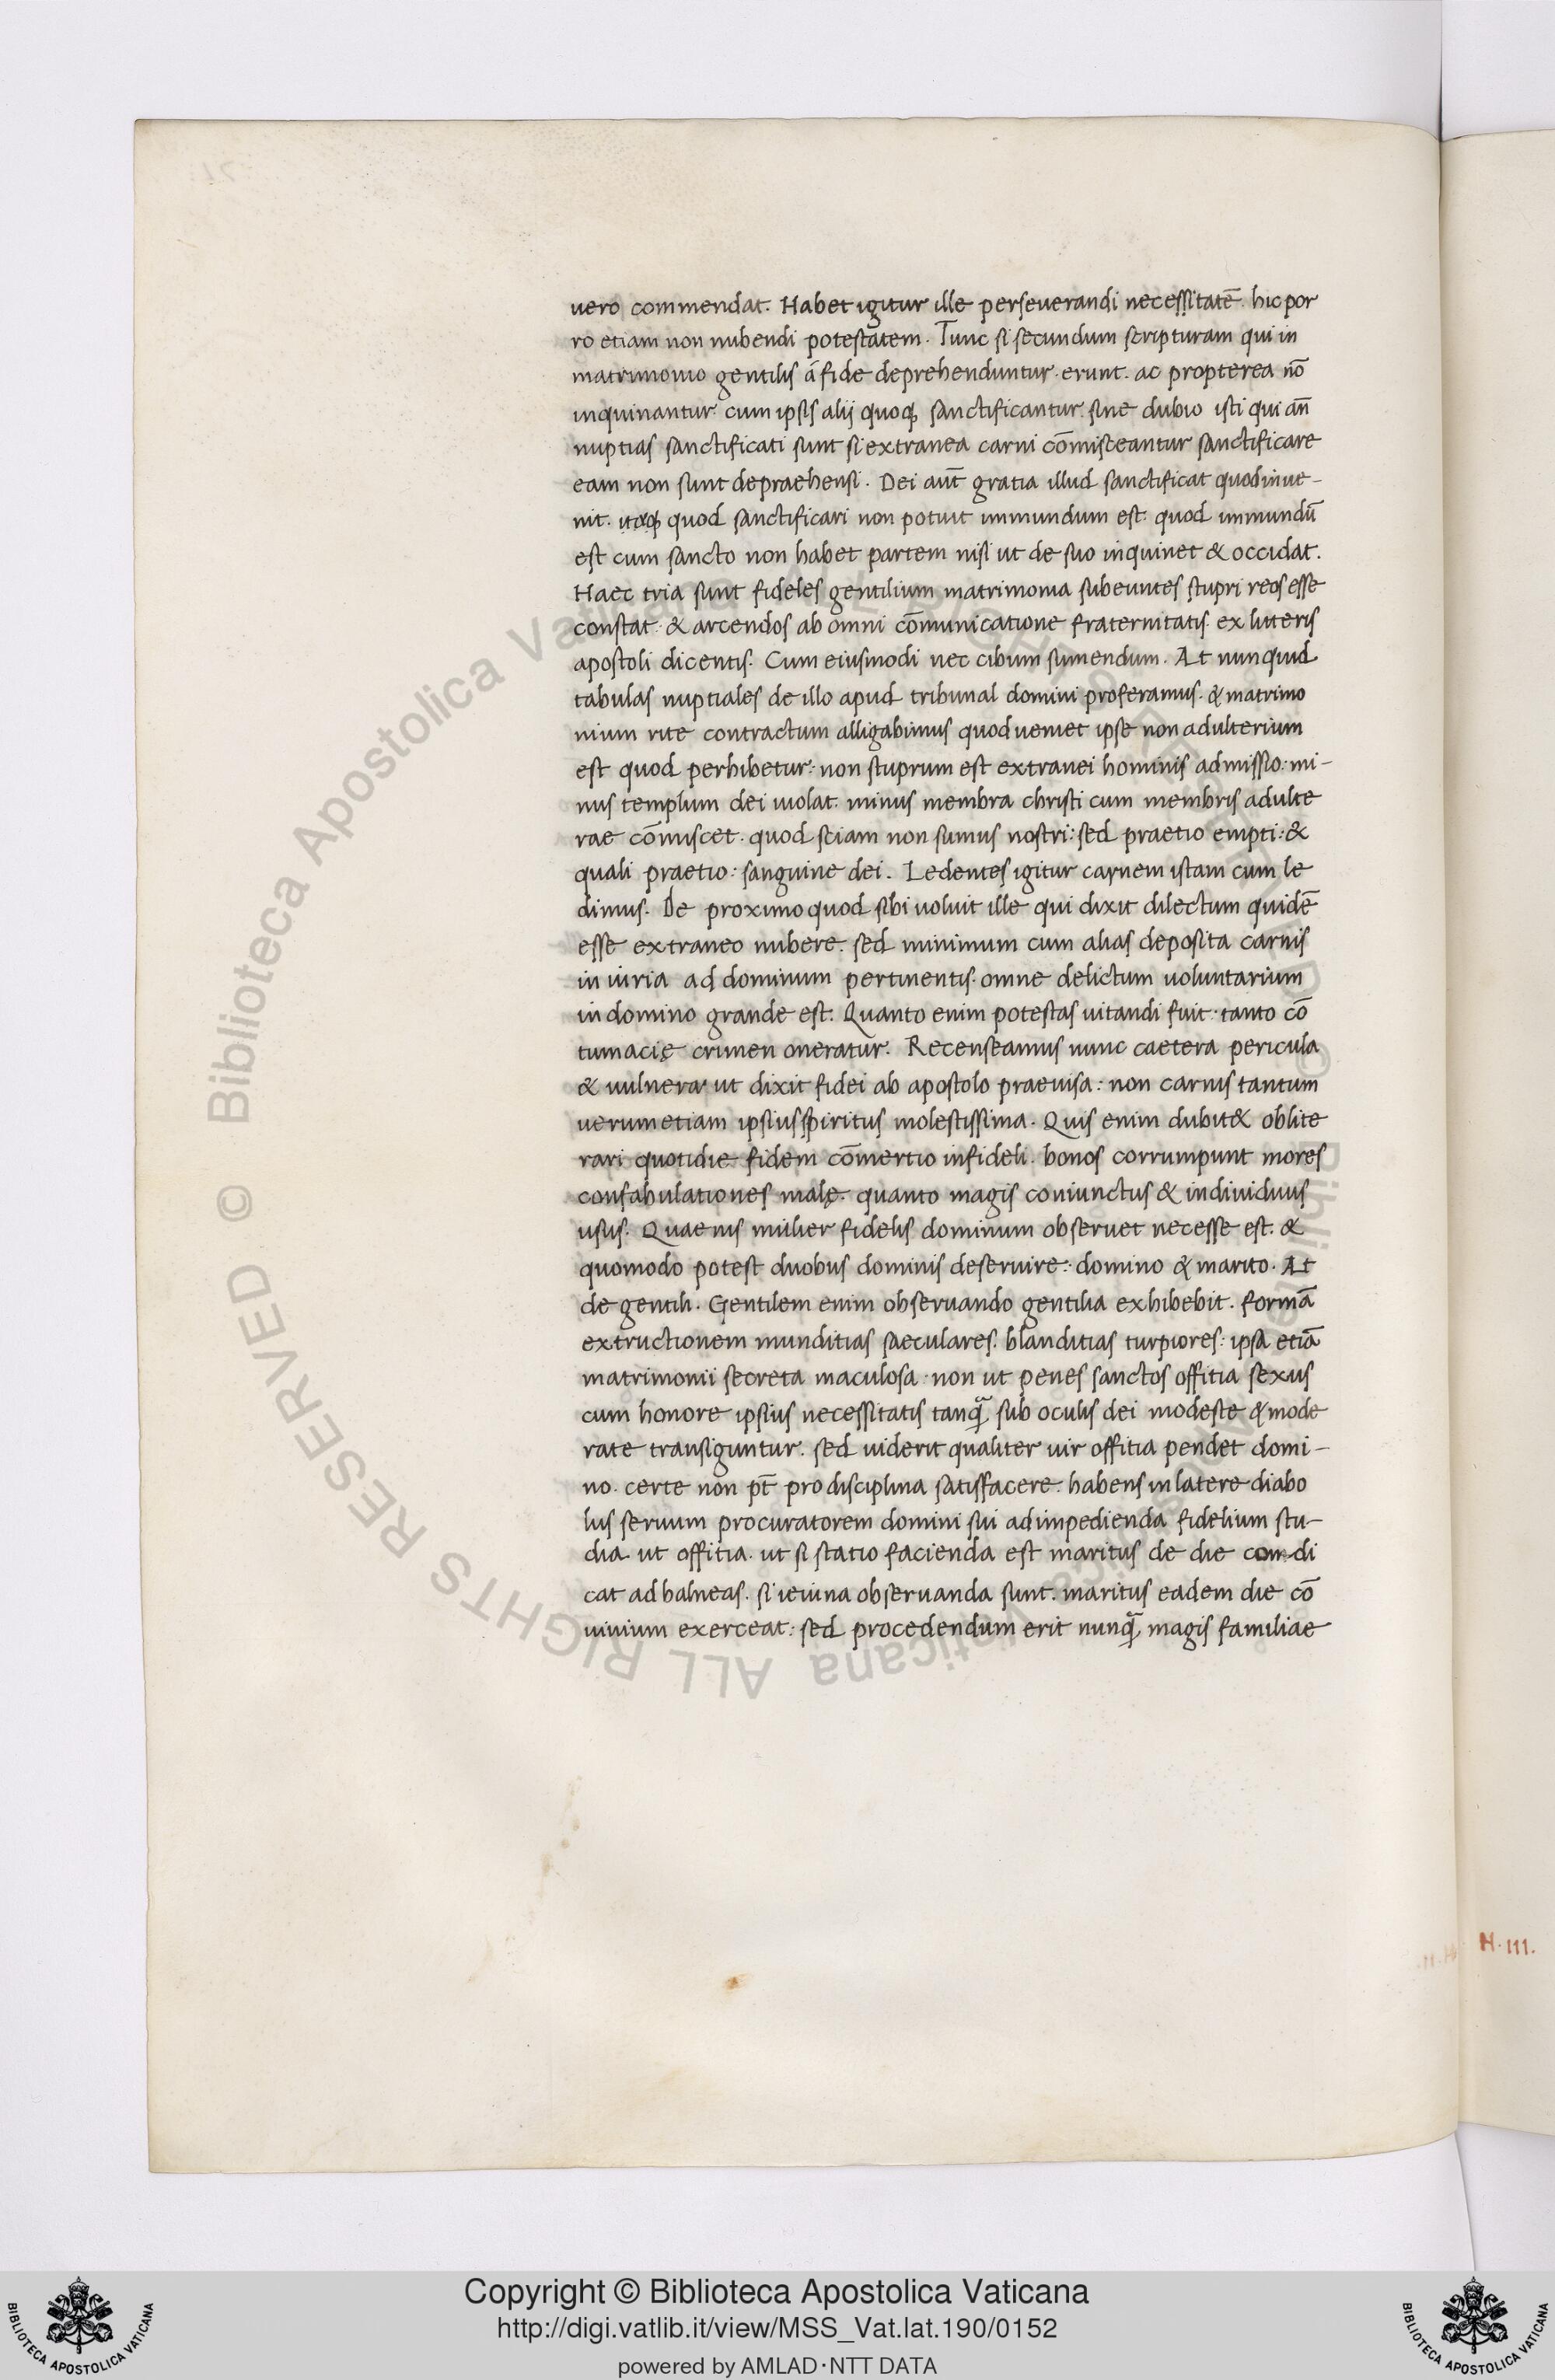 uero commendat. Habet igitur ille perseuerandi necessitatē. hic por
ro etiam non nubendi potestatem. Tunc si secundum scripturam qui in
matrimonio gentilis á fide deprehenduntur. erunt. ac propterea nō
inquinantur. cum ipsis alij quoq; sanctificantur. sine dubio isti qui an̄
nuptias sanctificati sunt si extranea carni cōmisceantur sanctificare
eam non sunt depraehensi. Dei aut̄ gratia illud sanctificat quod inue-
nit. itaq; quod sanctificari non potuit immundum est. quod immundū
est cum sancto non habet partem nisi ut de suo inquinet & occidat.
Haec tria sunt fideles gentilium matrimonia subeuntes stupri reos esse
constat. & arcendos ab omni cōmunicatione fraternitatis. ex litteris
apostoli dicentis. Cum eiusmodi nec cibum sumendum. At nunquid
tabulas nuptiales de illo apud tribunal domini proferamus. & matrimo
nium rite contractum alligabimus quod uemet ipse non adulterium
est quod perhibetur: non stuprum est extranei hominis admissio: mi-
nus templum dei uiolat. minus membra christi cum membris adulte
rae cōmiscet. quod sciam non sumus nostri: sed praetio empti: &
quali praetio: sanguine dei. Ledentes igitur carnem istam cum le
dimus. De proximo quod sibi uoluit ille qui dixit dilectum quidē
esse extraneo nubere. sed minimum cum alias deposita carnis
in iuria ad dominum pertinentis. omne delictum uoluntarium
in domino grande est. Quanto enim potestas uitandi fuit. tanto cō
tumacię crimen oneratur. Recenseamus nunc caetera pericula
& uulnera ut dixit fidei ab apostolo praeuisa: non carnis tantum
uerum etiam ipsius spiritus molestissima. Quis enim dubit& oblite
rari quotidie fidem cōmertio infideli. bonos corrumpunt mores
confabulationes malę. quanto magis coniunctus & indiuiduus
usus. Quaeuis mulier fidelis dominum obseruet necesse est. &
quomodo potest duobus dominis deseruire: domino & marito. At
de gentili. Gentilem enim obseruando gentilia exhibebit. formā
extructionem munditias saeculares. blanditias turpiores: ipsa etiā
matrimonii secreta maculosa. non ut penes sanctos offitia sexus
cum honore ipsius necessitatis tanq̄; sub oculis dei modeste & mode
rate transiguntur. sed uiderit qualiter uir offitia pendet domi-
no. certe non pt̄ pro disciplina satisfacere. habens in latere diabo
lus seruum procuratorem domini sui ad impedienda fidelium stu-
dia. ut offitia. ut si statio facienda est maritus de die con-di
cat ad balneas. si ieiuna obseruanda sunt. maritus eadem die cō
uiuium exerceat: sed procedendum erit nunq̄; magis familiae
H.III.
© Biblioteca Apostolica Vaticana ALL RIGHTS RESERVED
Copyright © Biblioteca Apostolica Vaticana
http://digi.vatlib.it/view/MSS_Vat.lat.190/0152
powered by AMLAD·NTT DATA
BIBLIOTECA APOSTOLICA VATICANA
BIBLIOTECA APOSTOLICA VATICANA